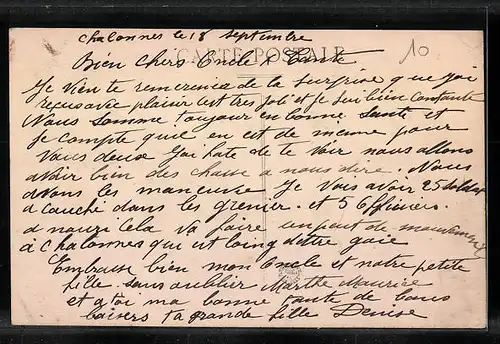 Chalonnes le 18 Septembre
10
CARTE POSTALE
Bien chers Oncle & Tante
Je vien te remerciez de la surprise que j'ai
reçus avec plaisir c'est tres joli et je sui bien contante
Nous somme toujour en bonne santé et
je compte quil en est de meme pour
vous deux. J'ai hate de te voir nous allons
avoir bien des chosse a nous dire. Nous
avons les maneuvre Je vais avoir 25 soldat
a couché dans les grenier. et 5 officiers.
a nourri Cela va faire un peut de mouvement
à Chalonnes qui est loing d'être gaie
Embrasse bien mon Oncle et notre petite
fille sans oublier Marthe Maurice
et a toi ma bonne tante de gros
baisers ta grande fille Denise